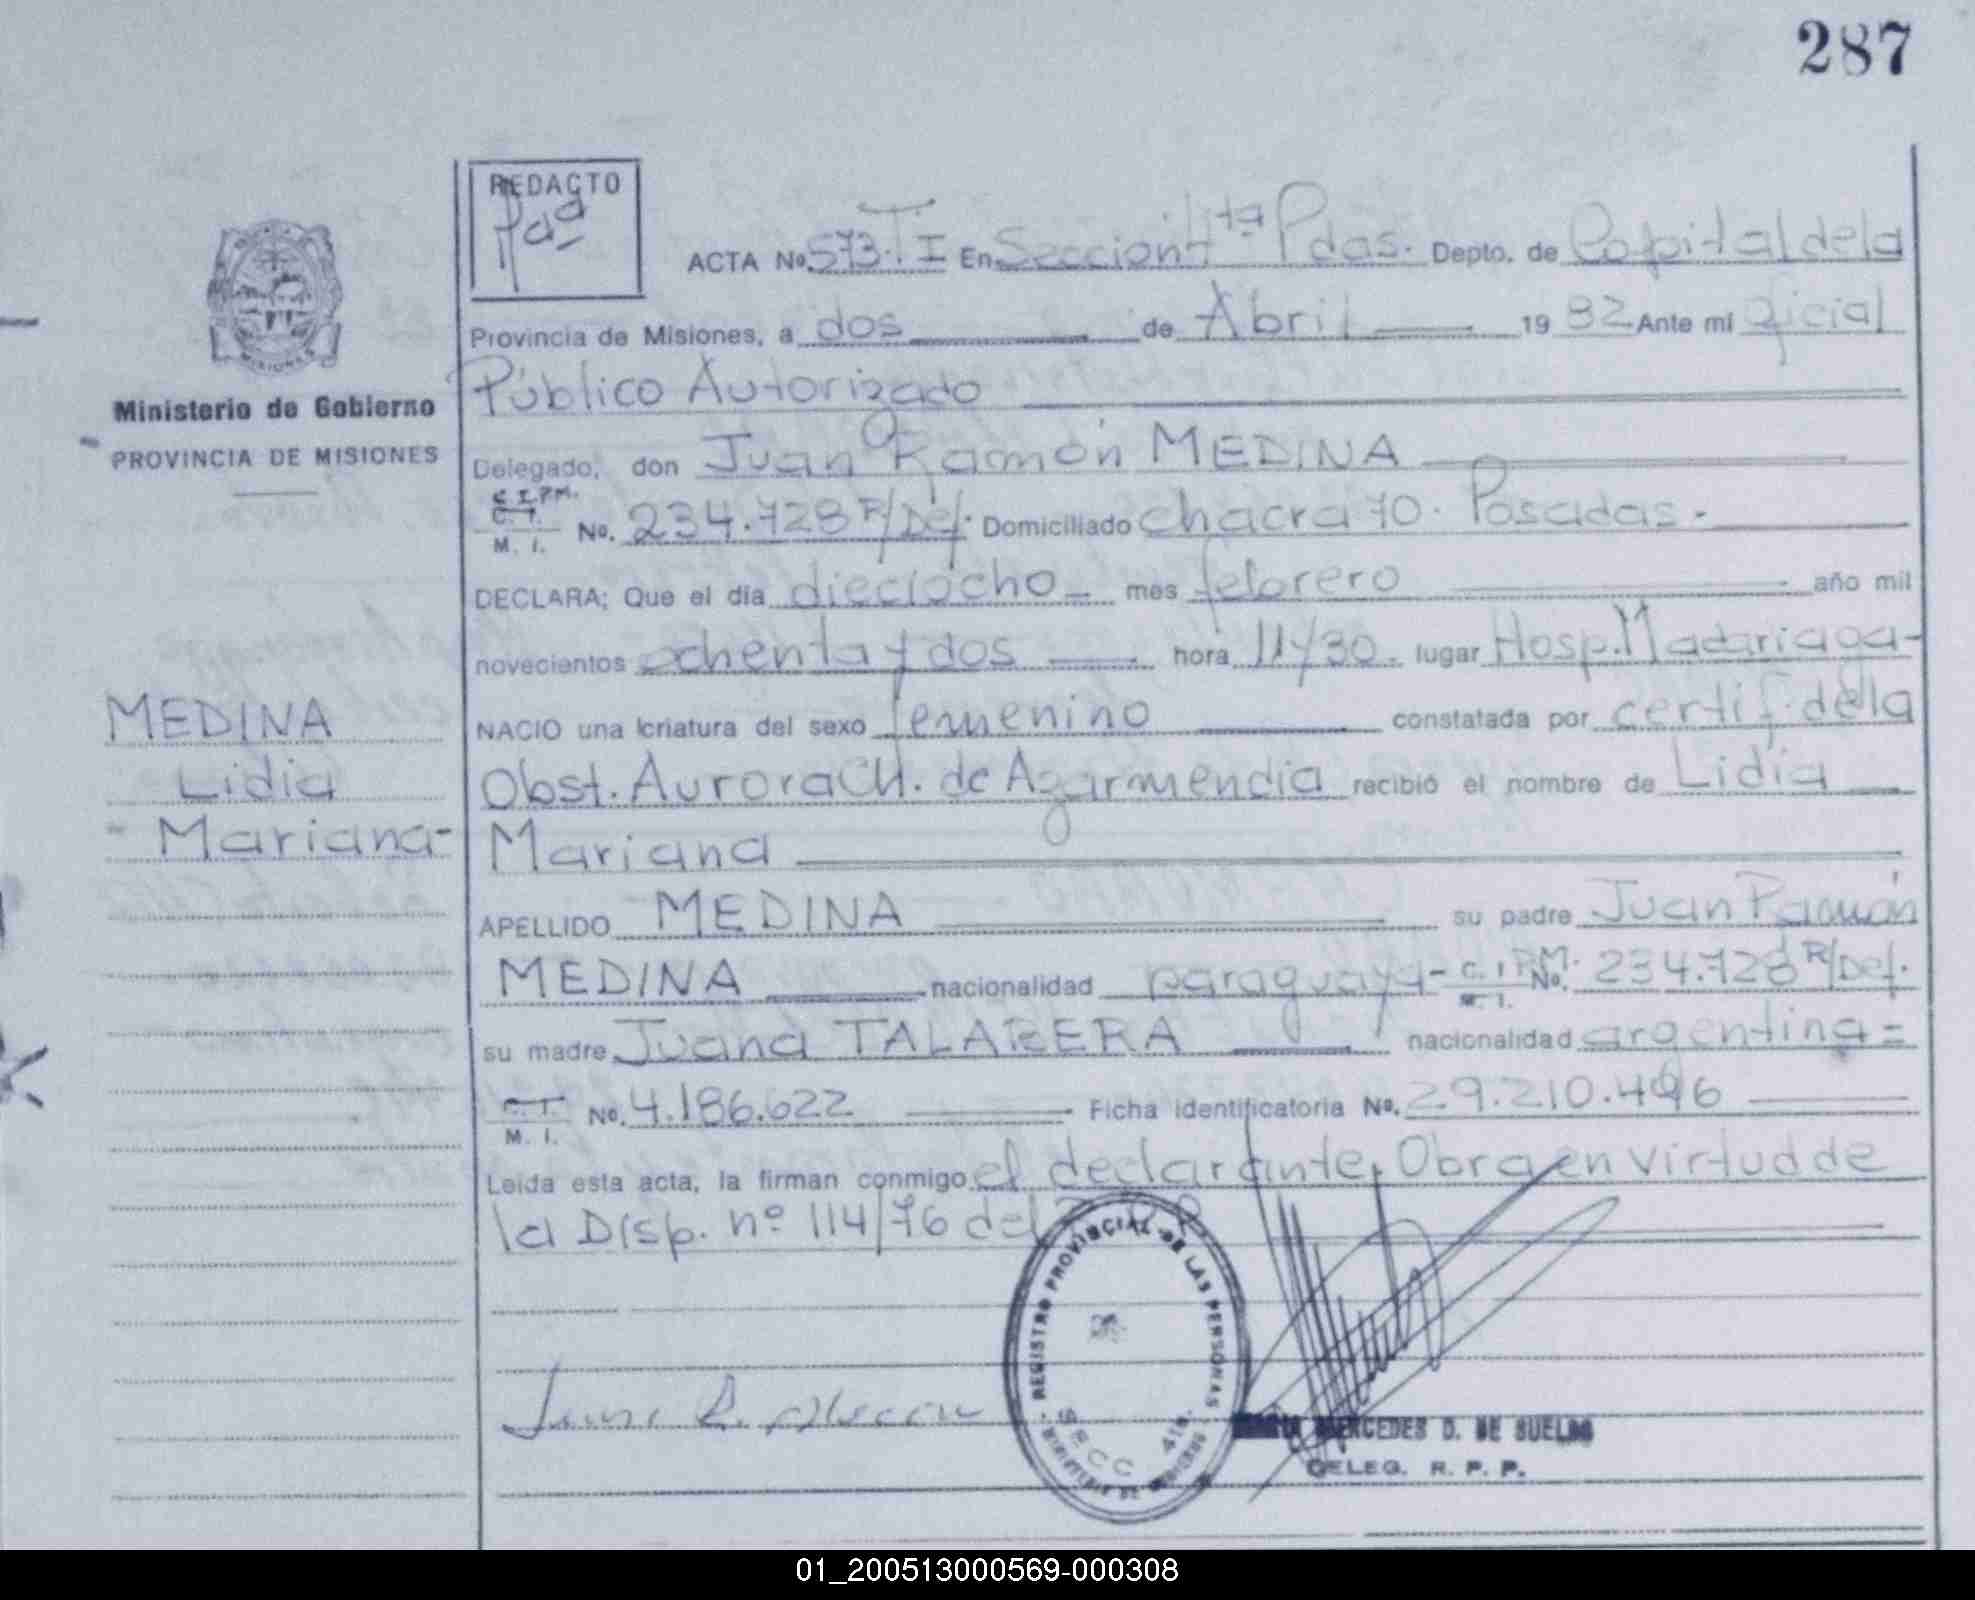 287
REDACTO
ACTA No. 573. T. I En Sección 4ta Pdas. Depto. de Capital de la
Provincia de Misiones, a dos de Abril 19 82 Ante mi Oficial
Público Autorizado
Delegado, don Juan Ramón MEDINA
C.I.P.M.
C. I.
M. I. No. 234.728 R/Def. Domiciliado chacra 70. Posadas.
DECLARA; Que el día dieciocho mes febrero año mil
novecientos ochenta y dos hora 11y30. lugar Hosp. Madariaga-
NACIO una criatura del sexo femenino constatada por certif. de la
Obst. Aurora CH. de Azarmendia recibió el nombre de Lidia
Mariana
APELLIDO MEDINA su padre Juan Ramón
MEDINA nacionalidad paraguaya- C. I P.M. No. 234.728 R/Def.
M. I.
su madre Juana TALABERA nacionalidad argentina=
C. I.
M. I. No. 4.186.622 Ficha identificatoria No. 29.210.496
Leida esta acta, la firman conmigo el declarante, Obra en virtud de
la Disp. nº 114/76 del
MISIONES
Ministerio de Gobierno
PROVINCIA DE MISIONES
MEDINA
Lidia
Mariana-
REGISTRO PROVINCIAL DE LAS PERSONAS
SECC 4ta.
MINISTERIO DE GOBIERNO
MERCEDES D. DE SUELDO
DELEG. R. P. P.
01_200513000569-000308